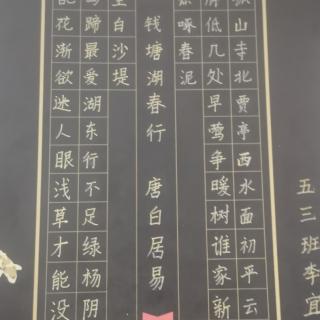 山寺北贾亭西水面初平云
低几处早莺争暖树谁家新
啄春泥
钱塘湖春行 唐白居易
花渐欲迷人眼浅草才能没
蹄最爱湖东行不足绿杨阴
白沙堤
五三班李宜